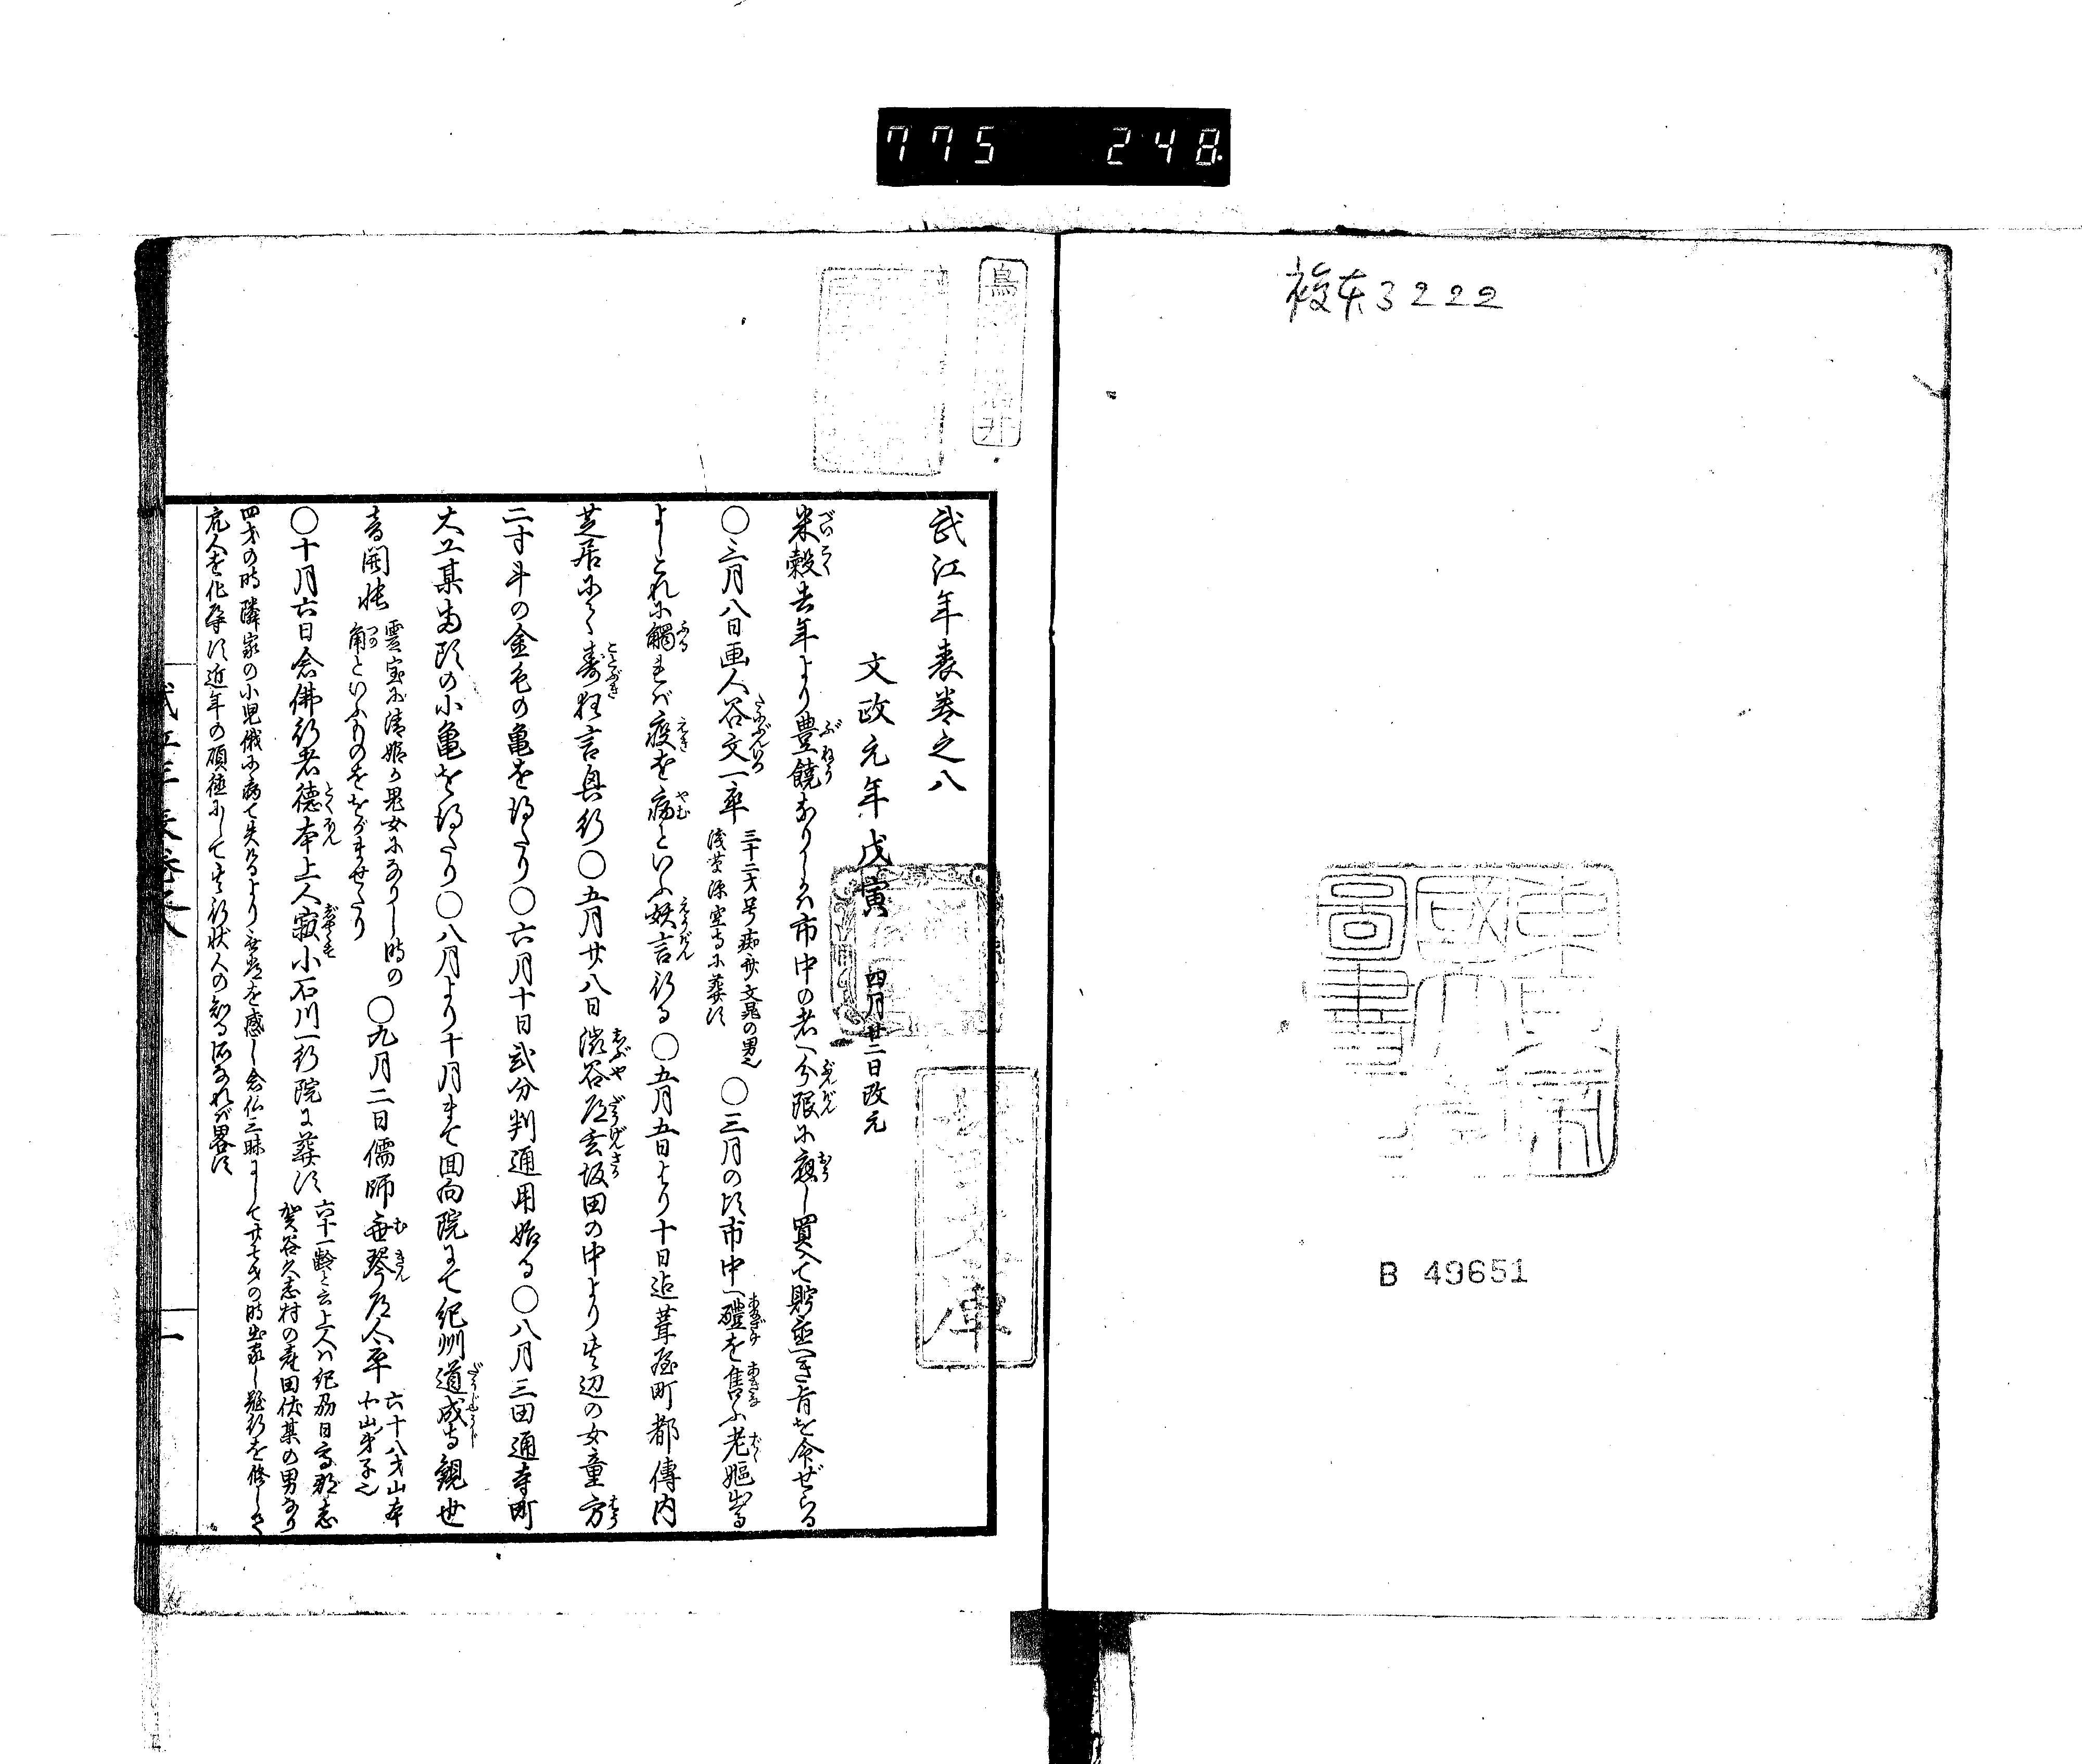 775 248
複本3222
B 49651
武江年表巻之八
文政元年戊寅 四月廿二日改元
米穀去年より豊饒なりしかは市中の者へ分限に應し買入て貯置へき旨を令ぜらる
○三月八日画人谷文一卒 三十二才号痴斎文晁の男也
浅草源空寺に葬す
○三月の頃市中へ醴を售ふ老嫗出る
よしこれに觸るれば疫を病といふ妖言行る○五月五日より十日迄葺屋町都傳内
芝居にて寿狂言興行○五月廿八日渋谷道玄坂田の中より其辺の女童方
二寸斗の金色の亀を得たり○六月十日弐分判通用始る○八月三田通寺町
大工某両頭の小亀を得たり○八月より十月まて回向院にて紀州道成寺観世
音開帳 霊宝に清姫か鬼女になりし時の
角といふものををがませたり
○九月二日儒師無琴道人卒 六十八才山本
北山弟子也
○十月六日念佛行者徳本上人寂小石川一行院に葬す 六十一齢と云上人ハ紀州日高郡志
賀谷久志村の産田伏某の男なり
四才の時隣家の小児俄に病て失けるより無常を感し念仏三昧にして廿七才の時出家し難行を修し
衆人を化導す近年の碩徳にして其行状人の知る所なれば畧す
武江年表巻之八
一